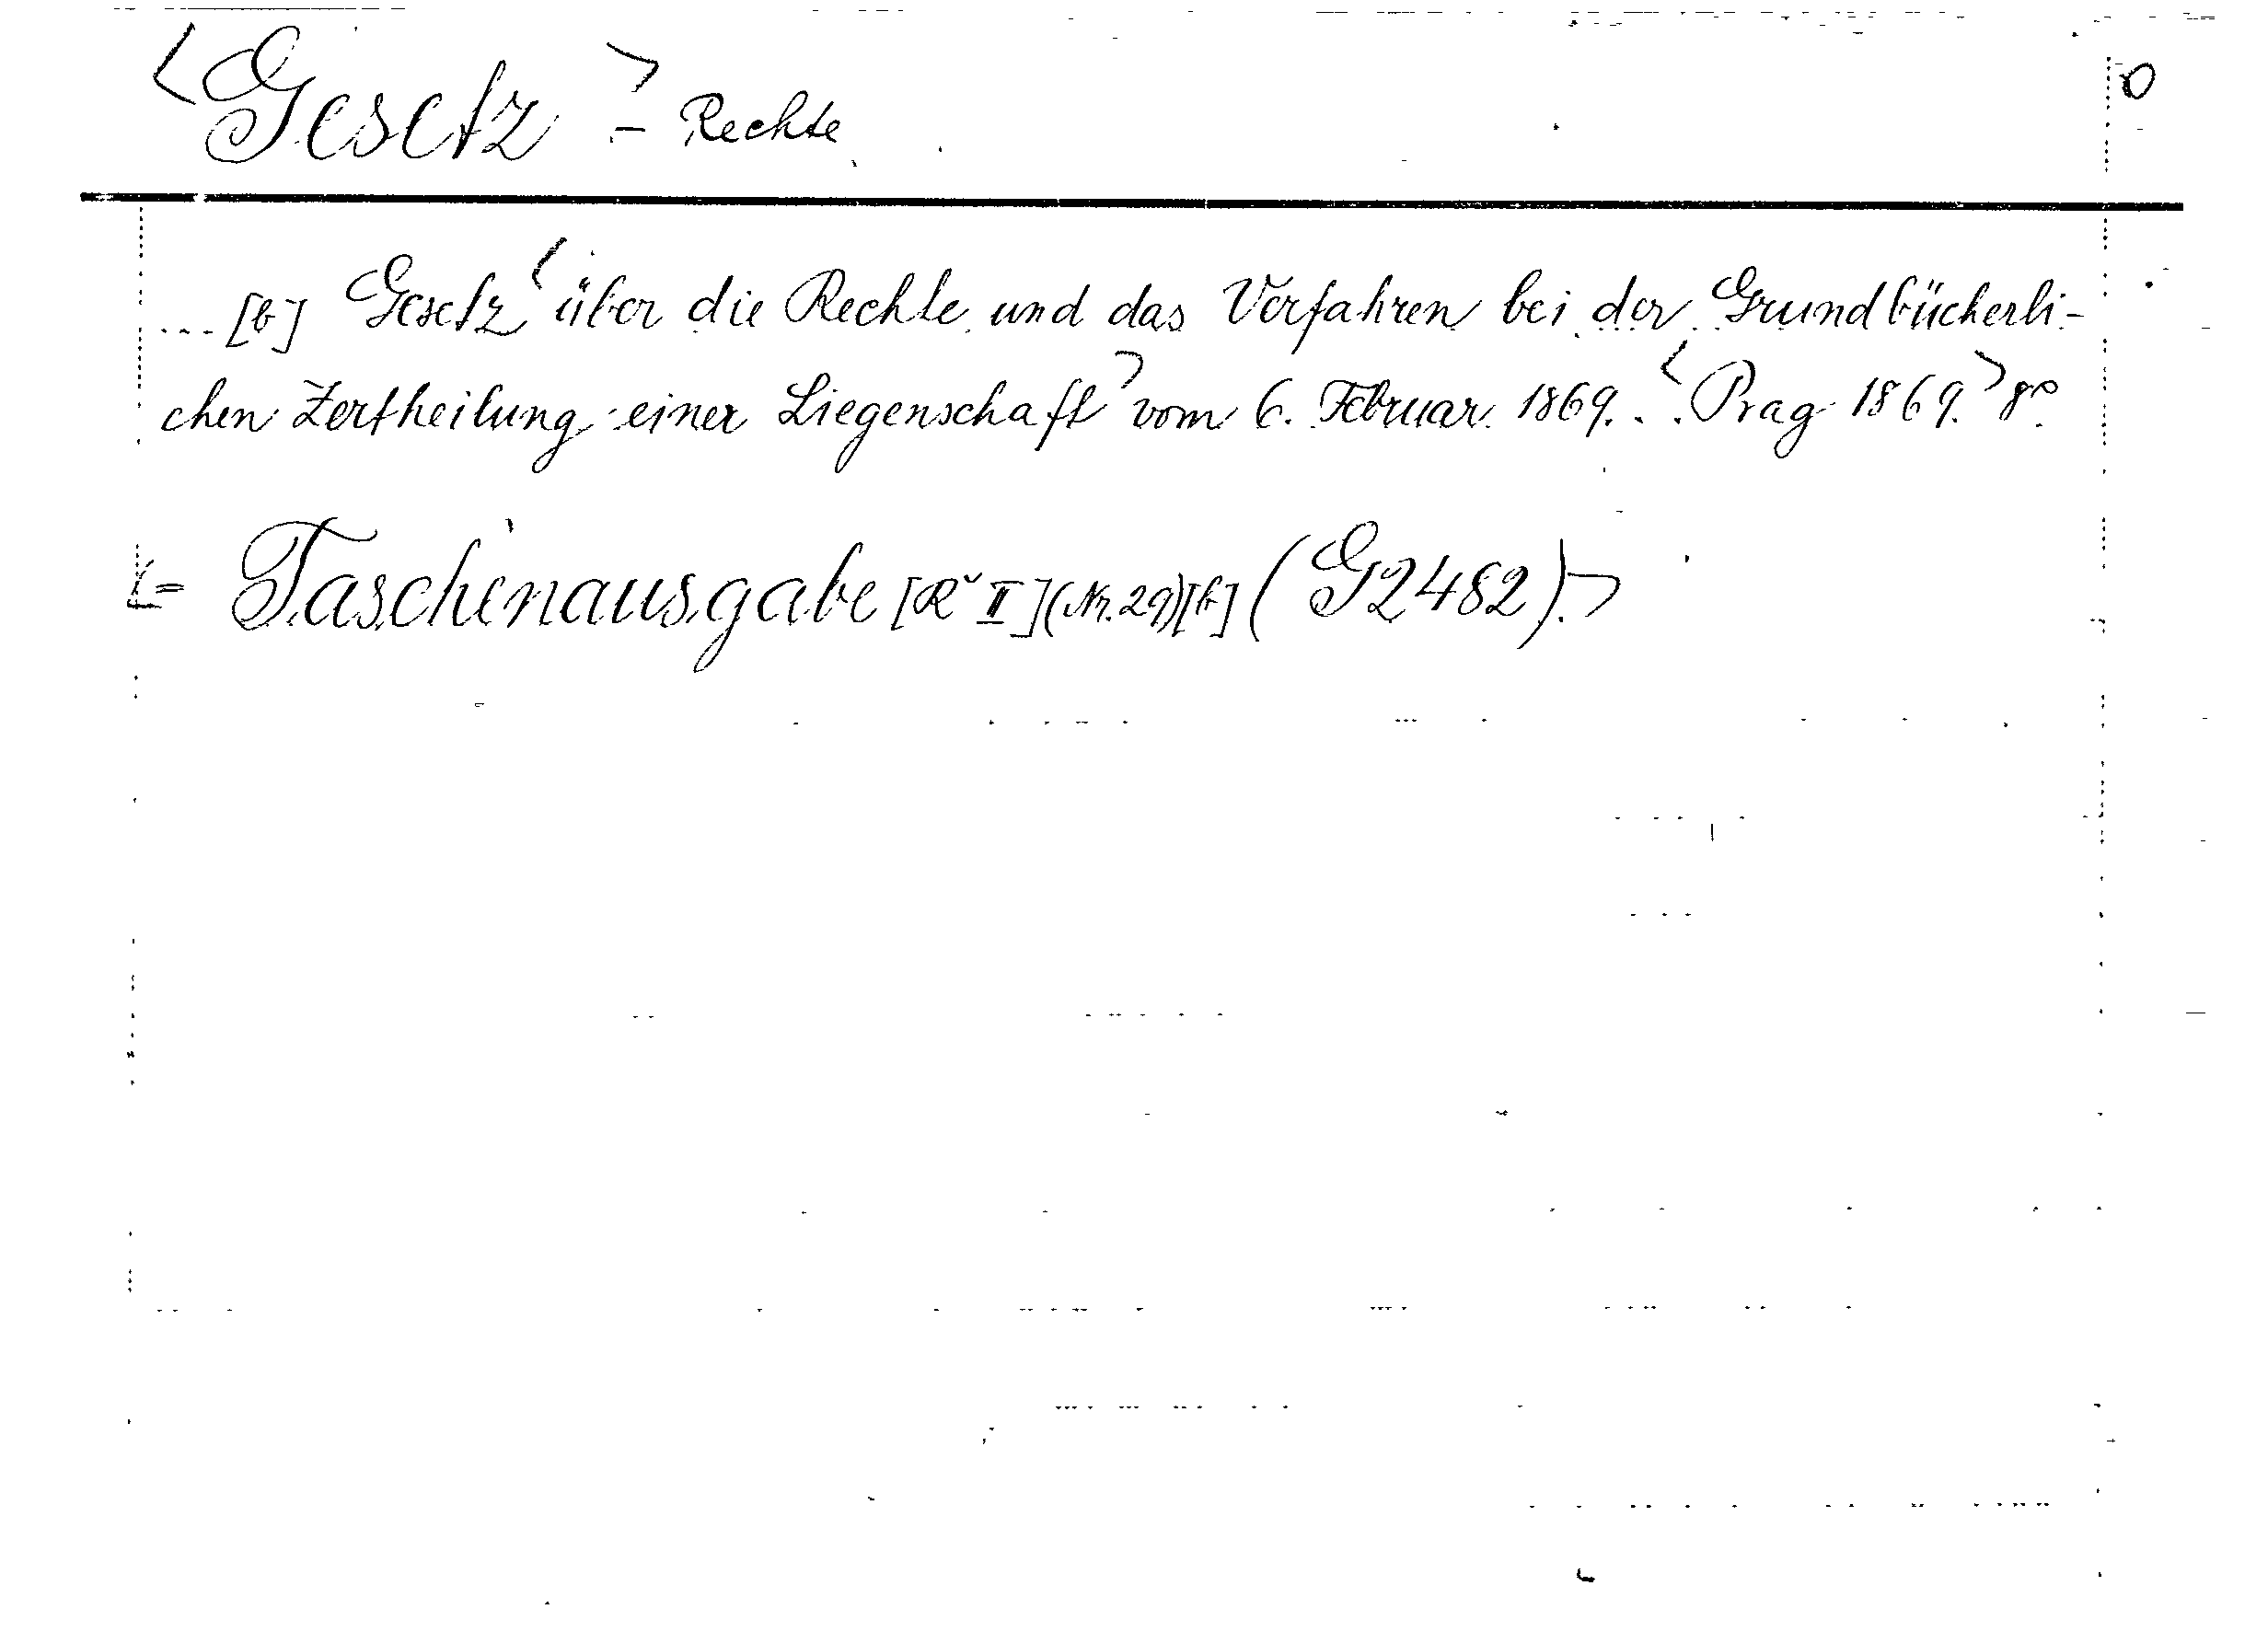 <Gesetz> - Rechte 0
... [b] Gesetz <über die Rechte und das Verfahren bei der Grundbücherli-
chen Zertheilung einer Liegenschaft> vom 6. Februar 1869. <Prag 1869.> 8°.
<= Taschenausgabe [Rˇ II] (Nr. 29) [b] (G2482).>